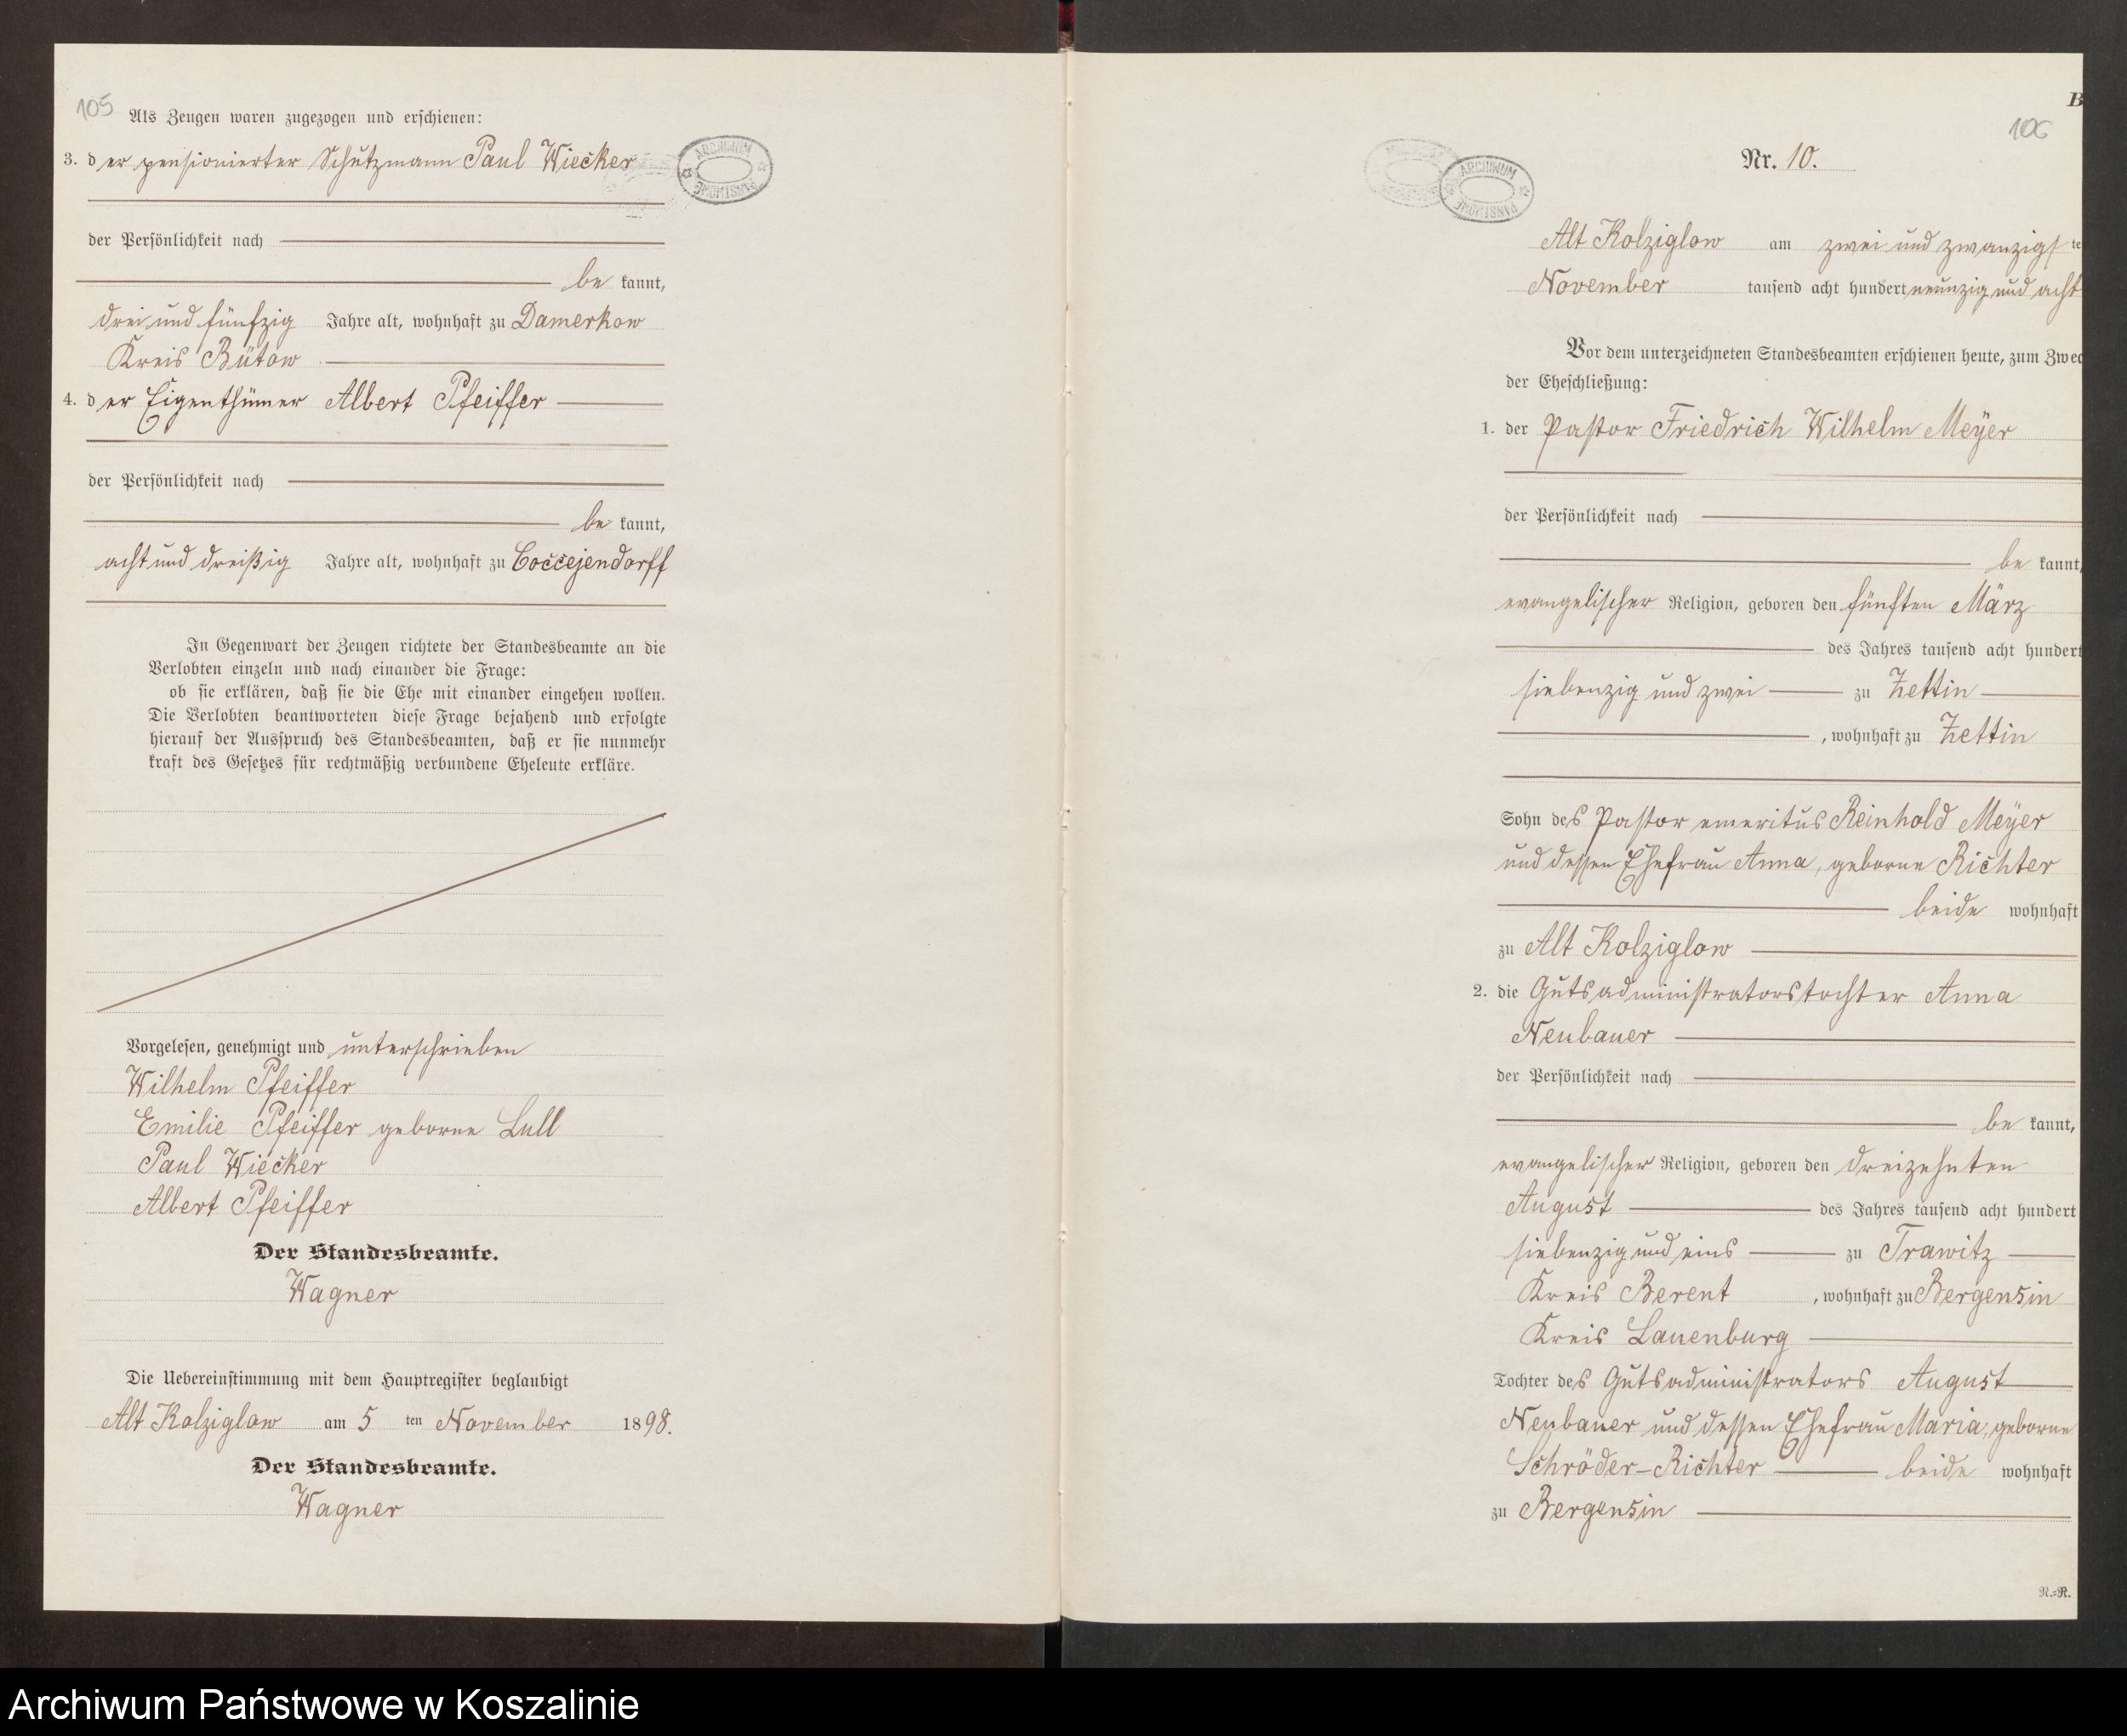 105
Als Zeugen waren zugezogen und erschienen:
3. der pensionierter Schutzmann Paul Wiecker
ARCHIWUM PAŃSTWOWE
der Persönlichkeit nach
be kannt,
drei und fünfzig Jahre alt, wohnhaft zu Damerkow
Kreis Bütow
4. der Eigenthümer Albert Pfeiffer
der Persönlichkeit nach
be kannt,
acht und dreißig Jahre alt, wohnhaft zu Coccejendorff
In Gegenwart der Zeugen richtete der Standesbeamte an die
Verlobten einzeln und nach einander die Frage:
ob sie erklären, daß sie die Ehe mit einander eingehen wollen.
Die Verlobten beantworteten diese Frage bejahend und erfolgte
hierauf der Ausspruch des Standesbeamten, daß er sie nunmehr
kraft des Gesetzes für rechtmäßig verbundene Eheleute erkläre.
Vorgelesen, genehmigt und unterschrieben
Wilhelm Pfeiffer
Emilie Pfeiffer geborne Lull
Paul Wiecker
Albert Pfeiffer
Der Standesbeamte.
Wagner
Die Uebereinstimmung mit dem Hauptregister beglaubigt
Alt Kolziglow am 5 ten November 1898.
Der Standesbeamte.
Wagner
B
106
Nr. 10.
ARCHIWUM PAŃSTWOWE
Alt Kolziglow am zwei und zwanzigst te
November tausend acht hundert neunzig und acht
Vor dem unterzeichneten Standesbeamten erschienen heute, zum Zwec
der Eheschließung:
1. der Pastor Friedrich Wilhelm Meÿer
der Persönlichkeit nach
be kannt,
evangelischer Religion, geboren den fünften März
des Jahres tausend acht hundert
siebenzig und zwei zu Zettin
, wohnhaft zu Zettin
Sohn des Pastor emeritus Reinhold Meÿer
und dessen Ehefrau Anna, geborne Richter
beide wohnhaft
zu Alt Kolziglow
2. die Gutsadministratorstochter Anna
Neubauer
der Persönlichkeit nach
be kannt,
evangelischer Religion, geboren den dreizehnten
August des Jahres tausend acht hundert
siebenzig und eins zu Trawitz
Kreis Berent , wohnhaft zu Bergensin
Kreis Lauenburg
Tochter des Gutsadministrators August
Neubauer und dessen Ehefrau Maria, geborne
Schröder-Richter beide wohnhaft
zu Bergensin
R.=R.
Archiwum Państwowe w Koszalinie